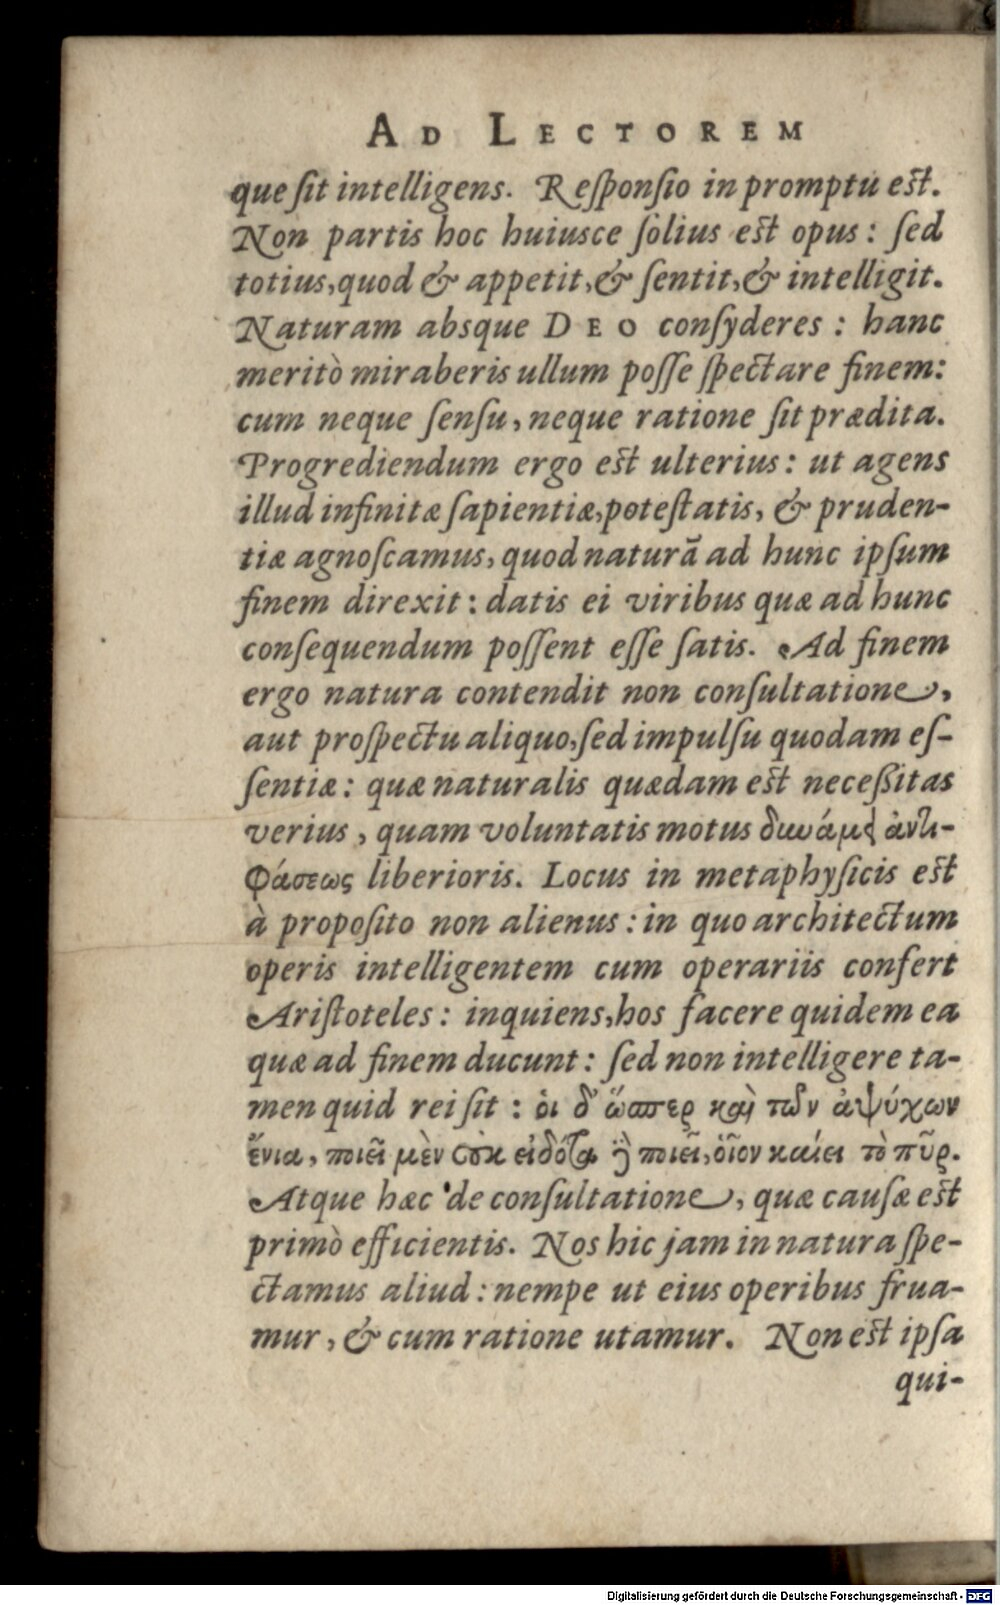 AD LECTOREM
que ſit intelligens. Reſponſio in promptu eſt.
Non partis hoc huiusce ſolius eſt opus: ſed
totius, quod & appetit, & ſentit, & intelligit.
Naturam absque DEO conſyderes: hanc
meritò miraberis ullum poſſe ſpectare finem:
cum neque ſenſu, neque ratione ſit prædita.
Progrediendum ergo eſt ulterius: ut agens
illud infinitæ ſapientiæ, poteſtatis, & pruden-
tiæ agnoſcamus, quod naturã ad hunc ipſum
finem direxit: datis ei viribus quæ ad hunc
conſequendum poſſent eſſe ſatis. Ad finem
ergo natura contendit non conſultatione,
aut proſpectu aliquo, ſed impulſu quodam eſ-
ſentiæ: quæ naturalis quædam eſt neceßitas
verius, quam voluntatis motus δυνάμει ἀντι-
φάσεως liberioris. Locus in metaphyſicis eſt
à propoſito non alienus: in quo architectum
operis intelligentem cum operariis confert
Ariſtoteles: inquiens, hos facere quidem ea
quæ ad finem ducunt: ſed non intelligere ta-
men quid rei ſit: ὁι δ' ὥσπερ καὶ τῶν ἀψύχων
ἔνια, ποιεῖ μὲν οὐκ εἰδότα δὲ ποιεῖ, ὁῖον καίει τὸ πῦρ.
Atque hæc de conſultatione, quæ cauſæ eſt
primò efficientis. Nos hic jam in natura ſpe-
ctamus aliud: nempe ut eius operibus frua-
mur, & cum ratione utamur. Non eſt ipſa
qui-
Digitalisierung gefördert durch die Deutsche Forschungsgemeinschaft - DFG